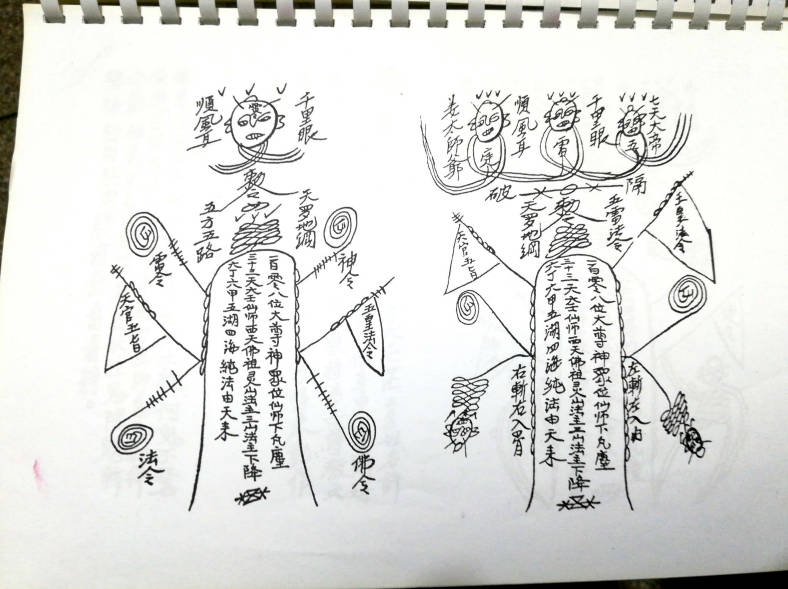 順風耳
千里眼
勅令
五方五路
天罗地網
雷令
神令
天官五旨
五皇法令
法令
佛令
一百零八位大尊神眾位仙师下凡塵
三十三天六壬仙师西天佛祖灵山法主三山法主下降
六丁六甲五湖四海純法由天来
七天大帝
千里眼
順風耳
老太師爺
雷
五
破
隔
勅令
天罗地網
五雷法令
天官五旨
玉皇法令
一百零八位大尊神眾位仙师下凡塵
三十三天六壬仙师西天佛祖灵山法主三山法主下降
六丁六甲五湖四海純法由天来
左斬左入
右斬右入胃